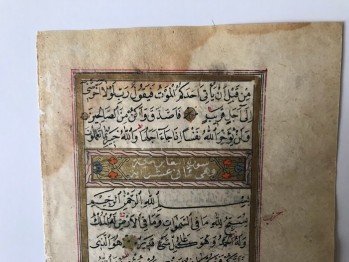 مِنْ قَبْلِ اَنْ يَأْتِىَ اَحَدَكُمُ الْمَوْتُ فَيَقُولَ رَبِّ لَوْلَا اَخَّرْتَنِى
اِلٰى اَجَلٍ قَرِيبٍ فَاَصَّدَّقَ وَاَكُنْ مِنَ الصَّالِحِينَ
وَلَنْ يُؤَخِّرَ اللّٰهُ نَفْسًا اِذَا جَاءَ اَجَلُهَا وَاللّٰهُ خَبِيرٌ بِمَا تَعْمَلُونَ
سورة التغابن مكية
وهى ثمانى عشرة اية
بِسْمِ اللّٰهِ الرَّحْمٰنِ الرَّحِيمِ
يُسَبِّحُ لِلّٰهِ مَا فِى السَّمٰوَاتِ وَمَا فِى الْاَرْضِ لَهُ الْمُلْكُ
وَلَهُ الْحَمْدُ وَهُوَ عَلٰى كُلِّ شَىْءٍ قَدِيرٌ هُوَ الَّذِى